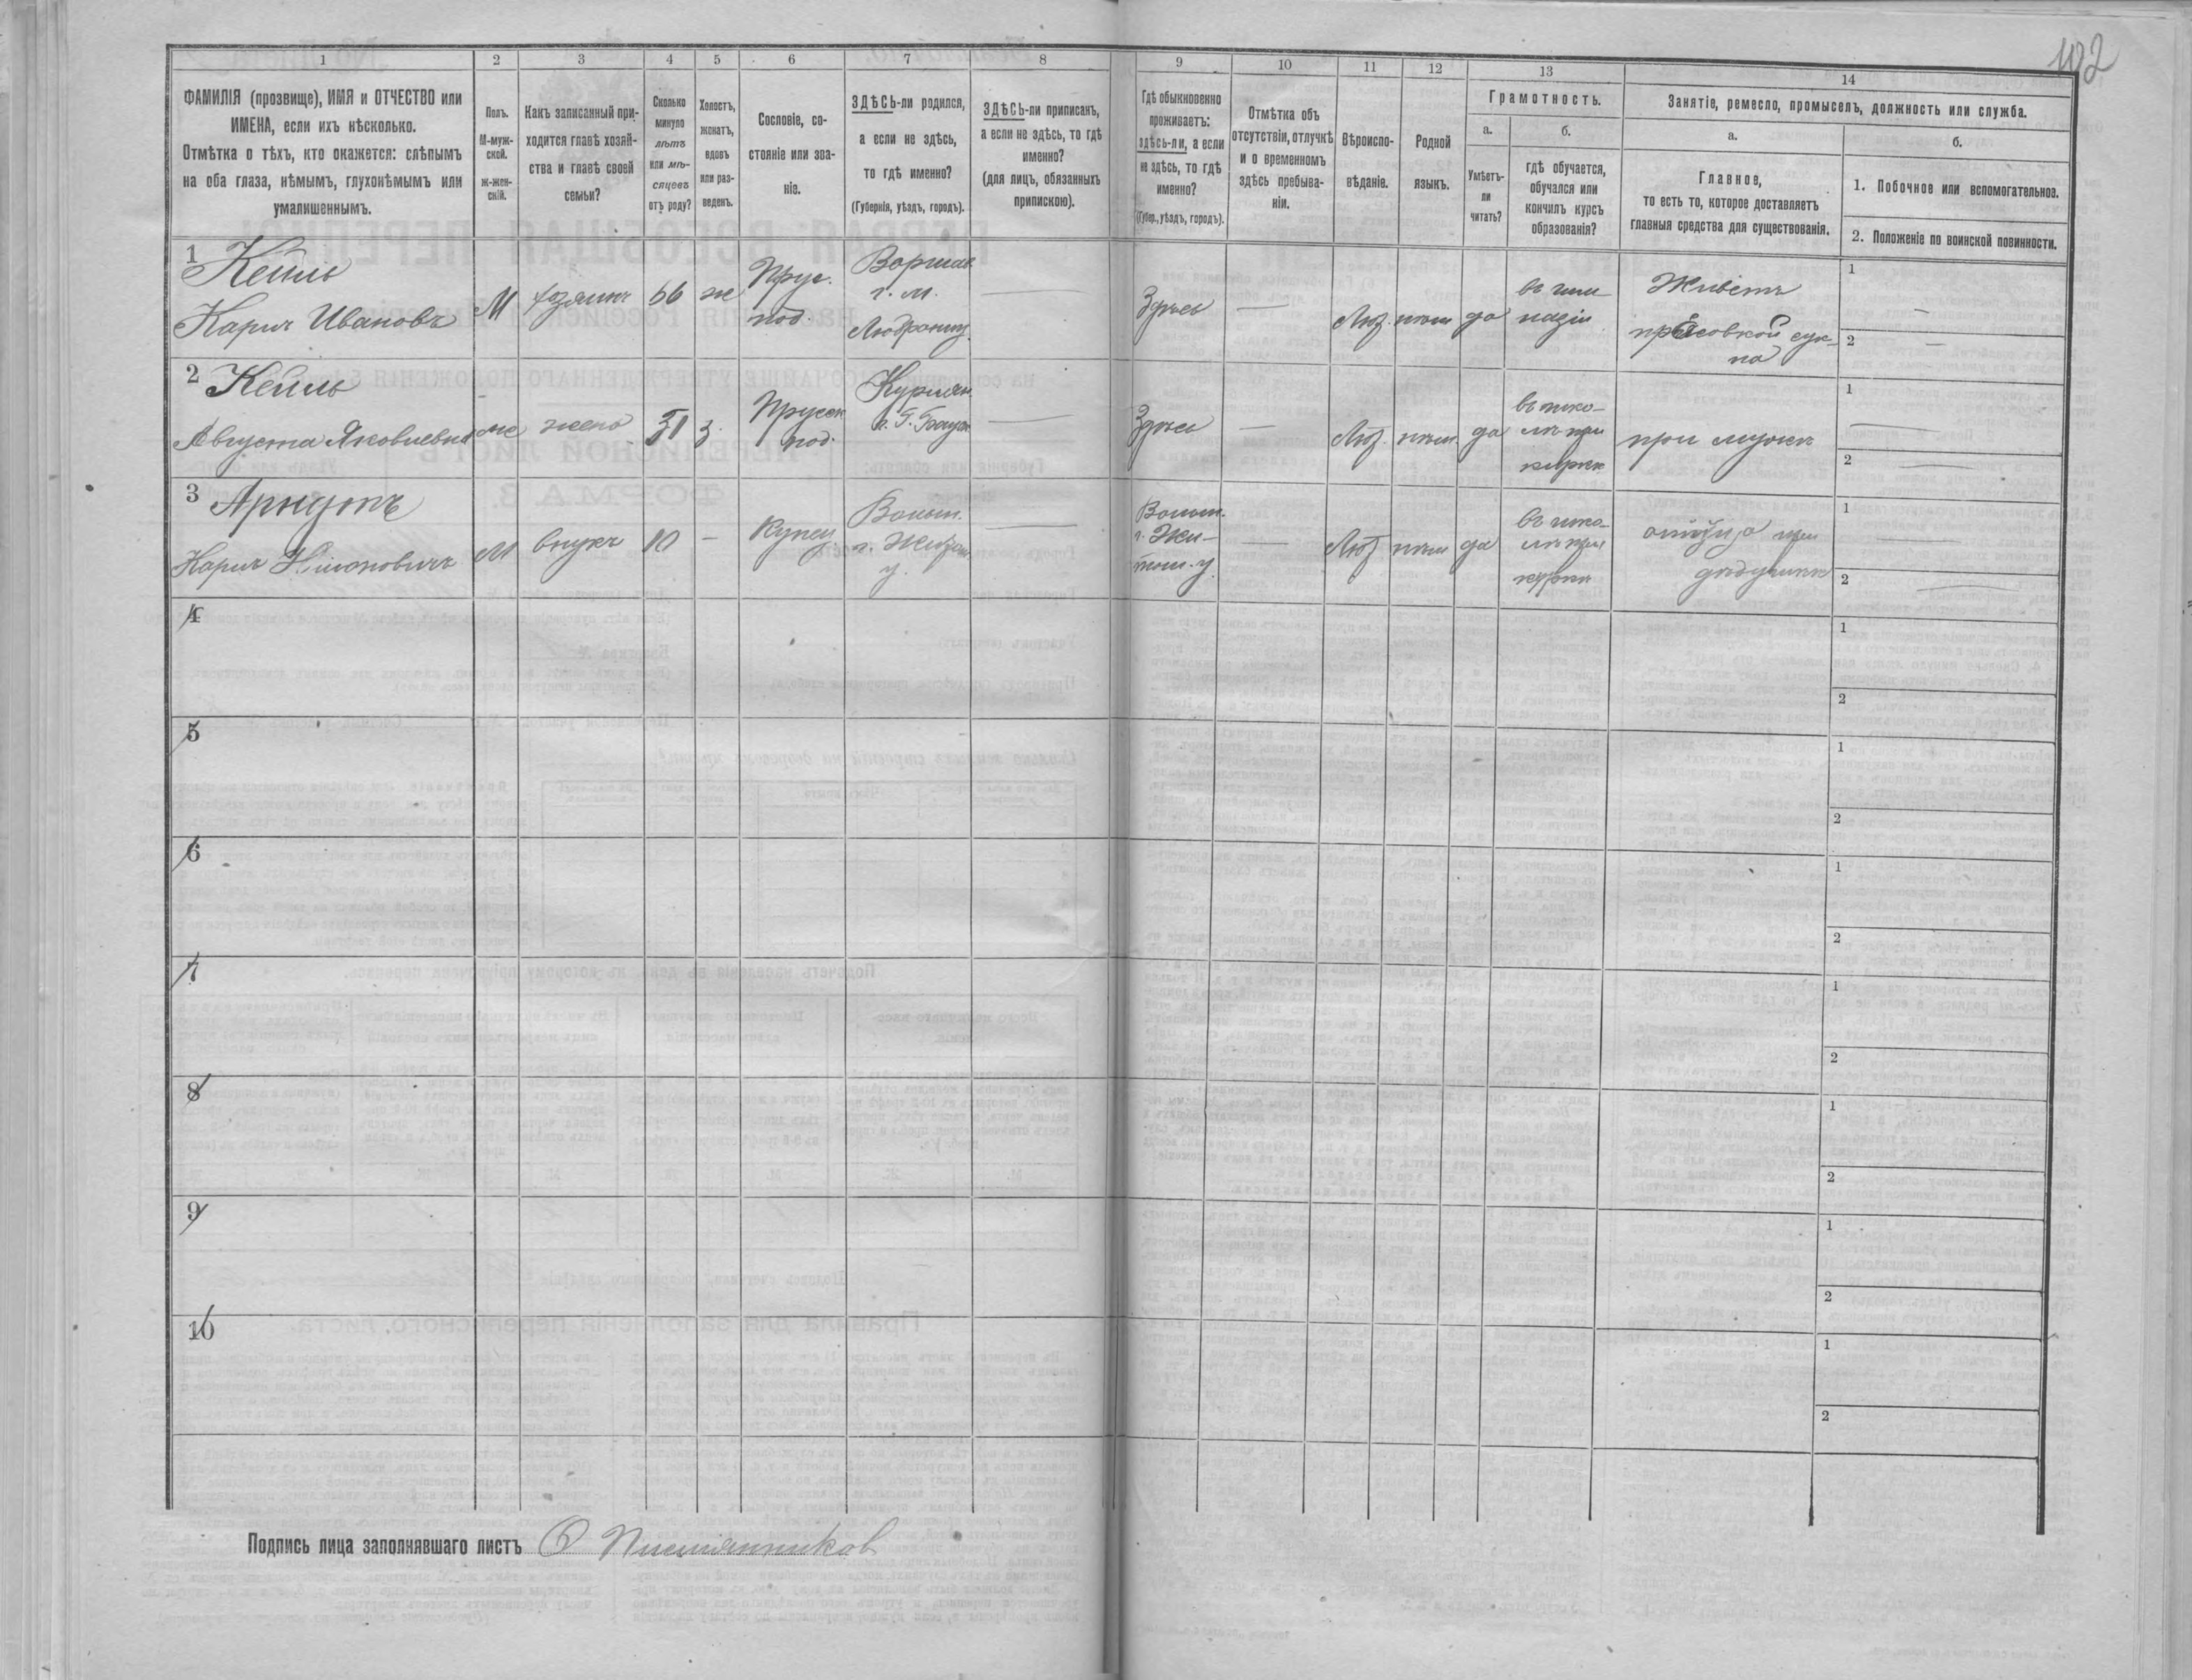 102
1 2 3 4 5 6 7 8 9 10 11 12 13 14
ФАМИЛІЯ (прозвище), ИМЯ и ОТЧЕСТВО или
ИМЕНА, если ихъ нѣсколько.
Отмѣтка о тѣхъ, кто окажется: слѣпымъ
на оба глаза, нѣмымъ, глухонѣмымъ или
умалишеннымъ.
Полъ.
М-муж-
ской.
ж-жен-
скій.
Какъ записанный при-
ходится главѣ хозяй-
ства и главѣ своей
семьи?
Сколько
минуло
лѣтъ
или мѣ-
сяцевъ
отъ роду?
Холостъ,
женатъ,
вдовъ
или раз-
веденъ.
Сословіе, со-
стояніе или зва-
ніе.
ЗДѢСЬ-ли родился,
а если не здѣсь,
то гдѣ именно?
(Губернія, уѣздъ, городъ).
ЗДѢСЬ-ли приписанъ,
а если не здѣсь, то гдѣ
именно?
(для лицъ, обязанныхъ
припискою).
Гдѣ обыкновенно
проживаетъ:
здѣсь-ли, а если
не здѣсь, то гдѣ
именно?
(Губер., уѣздъ, городъ).
Отмѣтка объ
отсутствіи, отлучкѣ
и о временномъ
здѣсь пребыва-
ніи.
Вѣроиспо-
вѣданіе.
Родной
языкъ.
Грамотность.
а.
Умѣетъ-
ли
читать?
б.
гдѣ обучается,
обучался или
кончилъ курсъ
образованія?
Занятіе, ремесло, промыселъ, должность или служба.
а.
Главное,
то есть то, которое доставляетъ
главныя средства для существованія.
б.
1. Побочное или вспомогательное.
2. Положеніе по воинской повинности.
1
Кейль
Карлъ Ивановъ
М
хозяинъ
66
ж
Прус.
под.
Варшав.
г. м.
Здѣсь
—
Лют.
нѣм
да
въ гим
назіи
Живетъ
прессовкой сук-
на
1 —
2 —
2
Кейль
Августа Яковлевна
ж
жена
51
з.
Прусск
под.
Курлян.
г. Г. Бауск
—
Здѣсь
—
Лют.
нѣм.
да
въ шко-
лѣ при
кирхѣ
при мужѣ
1 —
2 —
3
Арндтъ
Карлъ
М
внукъ
10
—
Купец.
Волын.
г. Житом.
у.
—
Волын.
г. Жи-
том. у.
—
Лют
нѣм
да
въ шко-
лѣ при
кирхѣ
при
дѣдушкѣ
1 —
2 —
4
1
2
5
1
2
6
1
2
7
1
2
8
1
2
9
1
2
10
1
2
Подпись лица заполнявшаго листъ